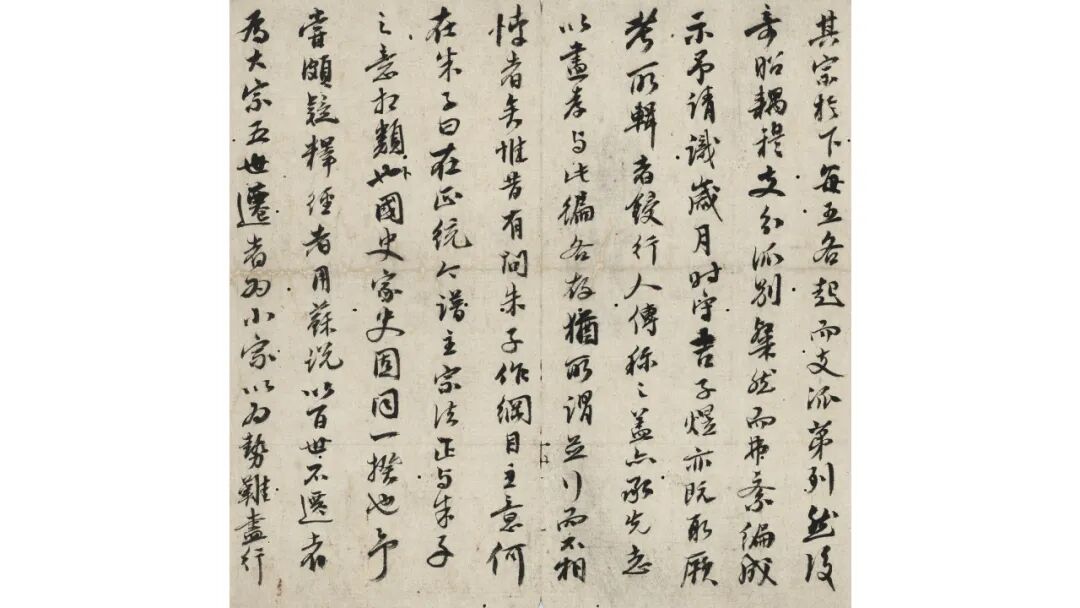 其宗於下每五各起而支派第列然後
奇昭耦穆支分派别粲然而弗紊编成
示予请識歲月时守吉子煜亦既取厥
考所輯者鋟行人傳称之盖亦承先志
以盡孝与此编各存猶所谓並行而不相
悖者矣惟昔有问朱子作綱目主意何
在朱子曰在正统今谱主宗法正与朱子
之意相類也國史家史固同一揆也予
嘗頗疑釋经者用蘇说以百世不遷者
为大宗五世遷者为小宗以为勢難盡行